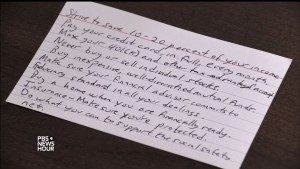 Strive to save 10-20 percent of your income
Pay your credit card in full every month
Max your 401(k) and other tax-advantaged accounts
Never buy or sell individual stocks.
Buy inexpensive, well-diversified mutual funds
Make sure your financial advisor commits to
fiduciary standard in all your dealings.
Buy a home when you are financially ready.
Insurance - Make sure you're protected.
Do what you can to support the social safety
net.
PBS
NEWS
HOUR